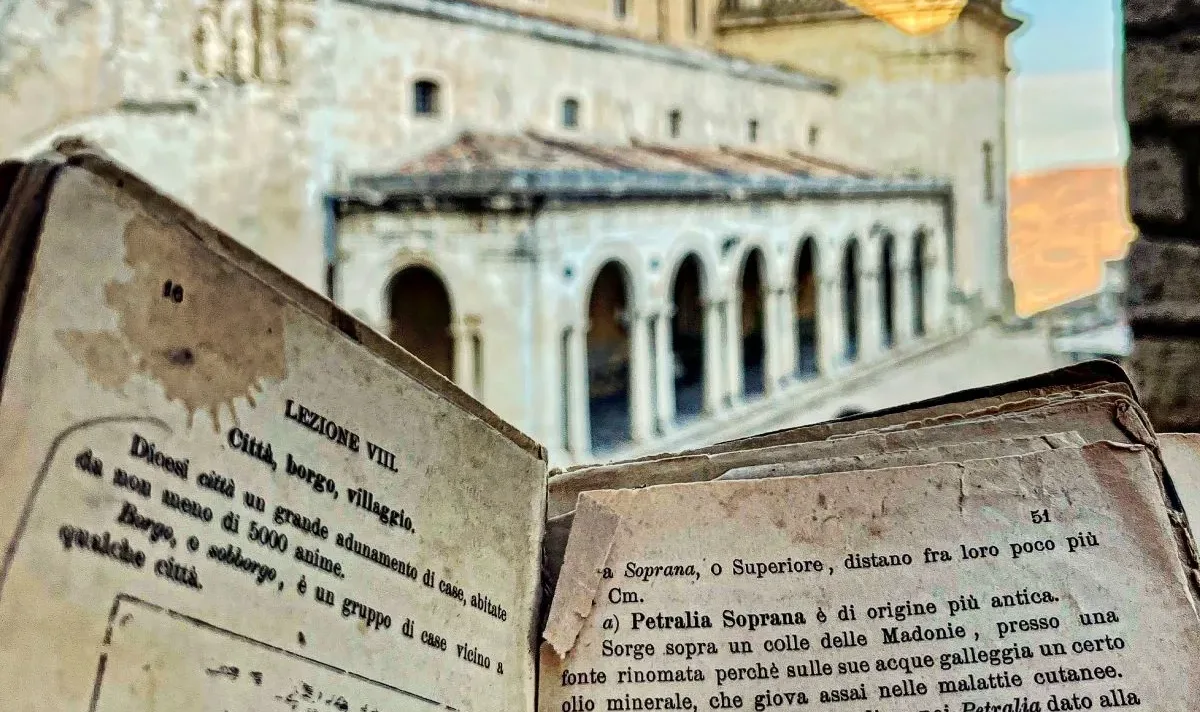 16
LEZIONE VIII.
Città, borgo, villaggio.
Dicesi città un grande adunamento di case, abitate
da non meno di 5000 anime.
Borgo, o sobborgo, è un gruppo di case vicino a
qualche città.
51
a Soprana, o Superiore, distano fra loro poco più
Cm.
a) Petralia Soprana è di origine più antica.
Sorge sopra un colle delle Madonie, presso una
fonte rinomata perchè sulle sue acque galleggia un certo
olio minerale, che giova assai nelle malattie cutanee.
Petralia dato alla